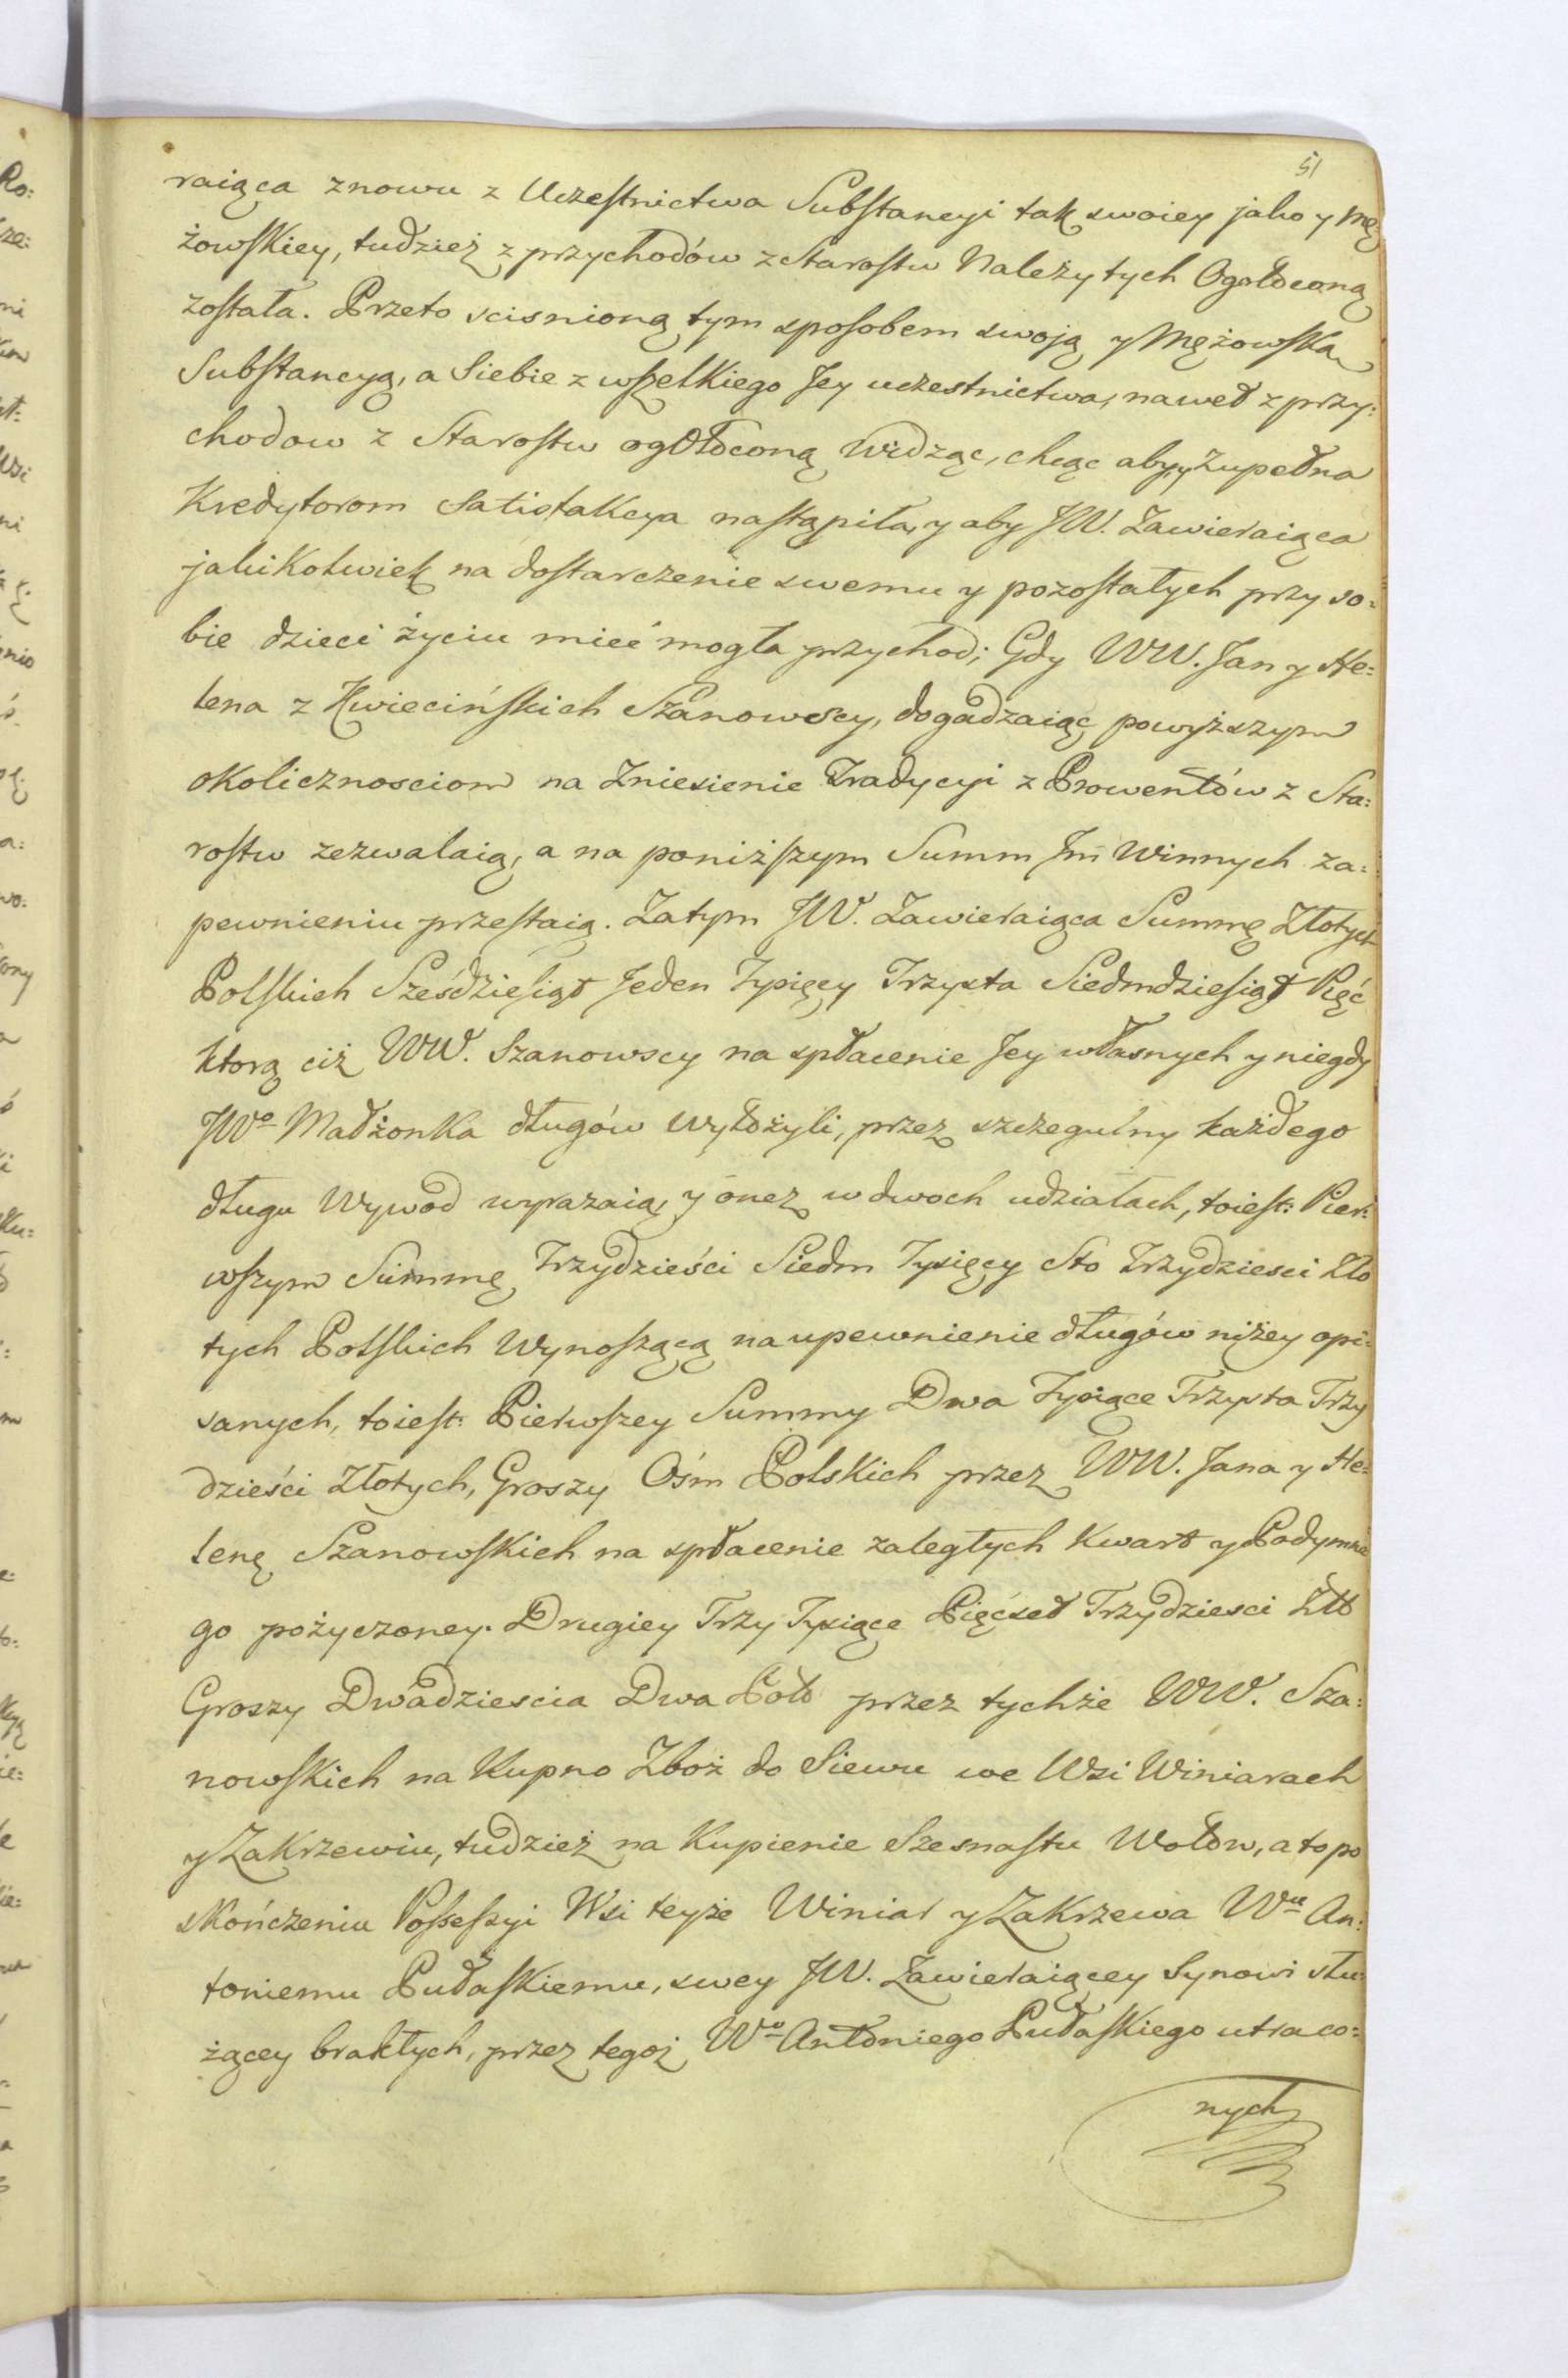 51
raiąca znowu z Uczestnictwa Substancyi tak swoiey jako y Mę
żowskiey, tudzież z przychodów z Starostw Należytych Ogołoconą
została. Przeto scisnioną tym sposobem swoją y Mężowską
Substancyą, a Siebie z wszelkiego Jey uczestnictwa, nawet z przy:
chodow z Starostw ogołoconą widząc, chcąc aby y Zupełna
Kredytorom Satisfakcya nastąpiła, y aby JW. Zawieraiąca
jakikolwiek na dostarczenie swemu y pozostałych przy so:
bie dzieci życiu mieć mogła przychod; Gdy WW. Jan y He:
lena z Kwiecińskich Szanowscy, dogadzaiąc powyższym
okolicznosciom na Zniesienie Tradycyi z Prowentów z Sta:
rostw zezwalaią, a na poniższym Summ Im Winnych za:
pewnieniu przestaią. Zatym JW. Zawieraiąca Summę Złotych
Polskich Sześdziesiąt Jeden Tysięcy Trzysta Siedmdziesiąt Pięć
ktorą ciż WW. Szanowscy na spłacenie Jey własnych y niegdy
JWo Małżonka długów wyłożyli, przez szczegulny każdego
długu Wywod wyrazaią, y onez w dwoch udziałach, toiest: Pier:
wszym Summę Trzydzieści Siedm Tysięcy Sto Trzydziesci Zło
tych Polskich Wynoszącą na upewnienie długów niżey opi:
sanych, toiest: Pierwszey Summy Dwa Tysiące Trzysta Trzy
dzieści Złotych, Groszy Ośm Polskich przez WW. Jana y He:
lenę Szanowskich na spłacenie zaległych Kwart y Podymne
go pożyczoney. Drugiey Trzy Tysiące Pięćset Trzydziesci Zło
Groszy Dwadziescia Dwa Pols przez tychże WW. Sza:
nowskich na Kupno Zboż do Siewu we Wsi Winiarach
y Zakrzewiu, tudzież na Kupienie Szesnastu Wołow, a to po
skończeniu Possessyi Wsi teyże Winiar y Zakrzewa Wu An:
toniemu Pułaskiemu, swey JW. Zawieraiącey Synowi słu:
żącey brakłych, przez tegoż Wo Antoniego Pułaskiego utraco:
nych